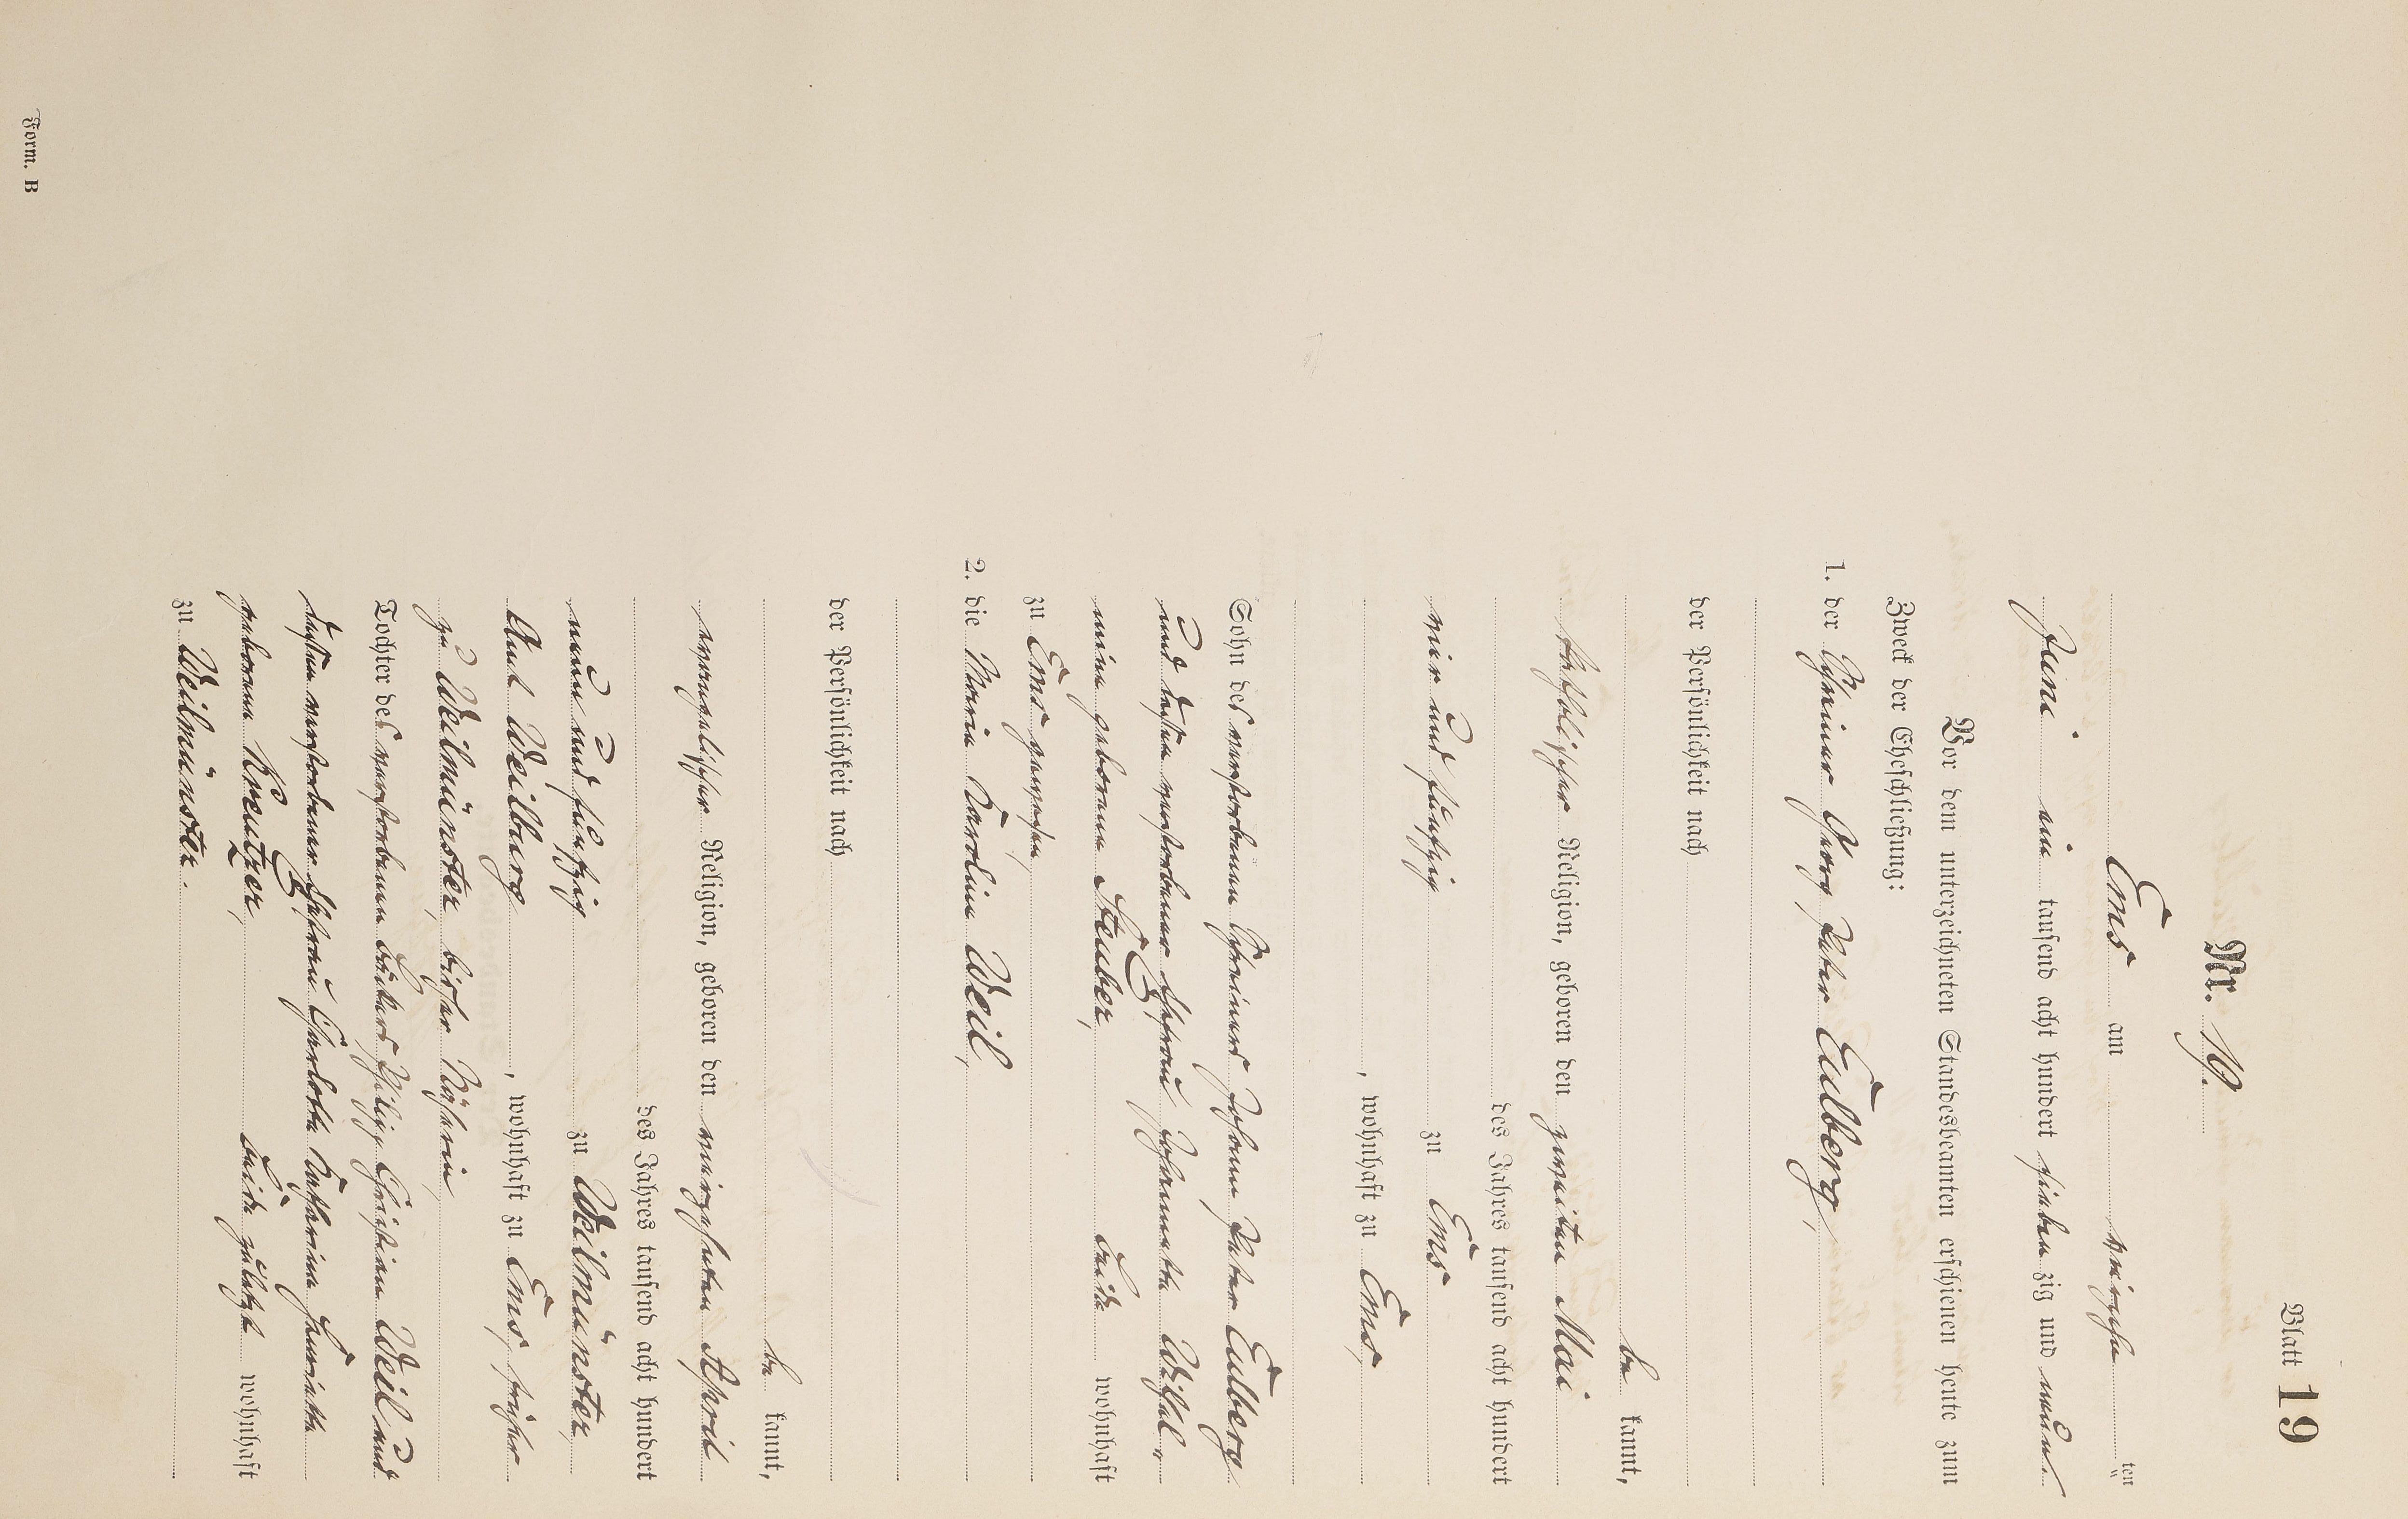 Blatt 19
Nr. 19.
Ems am vierzehn ten
Juni ein tausend acht hundert sieben zig und neun.
Vor dem unterzeichneten Standesbeamten erschienen heute zum
Zweck der Eheschließung:
1. der Schreiner Georg Peter Eulberg,
der Persönlichkeit nach
be kannt,
katholischer Religion, geboren den zweiten Mai
des Jahres tausend acht hundert
vier und fünfzig zu Ems
, wohnhaft zu Ems,
Sohn des verstorbenen Schreiners Johann Peter Eulberg
und dessen verstorbener Ehefrau Johannette Wilhel-
mine geborene Steuber, beide wohnhaft
zu Ems gewesen,
2. die Maria Karolin Weil,
der Persönlichkeit nach
be kannt,
evangelischer Religion, geboren den vierzehnten April
des Jahres tausend acht hundert
neun und fünfzig zu Weilmünster,
Amt Weilburg , wohnhaft zu Ems, früher
zu Weilmünster, bisher Näherin,
Tochter des verstorbenen Bäckers Philipp Christian Weil und
dessen verstorbener Ehefrau Charlotte Katharina Henriette
geborene Kreutzer, beide zuletzt wohnhaft
zu Weilmünster.
Form. B